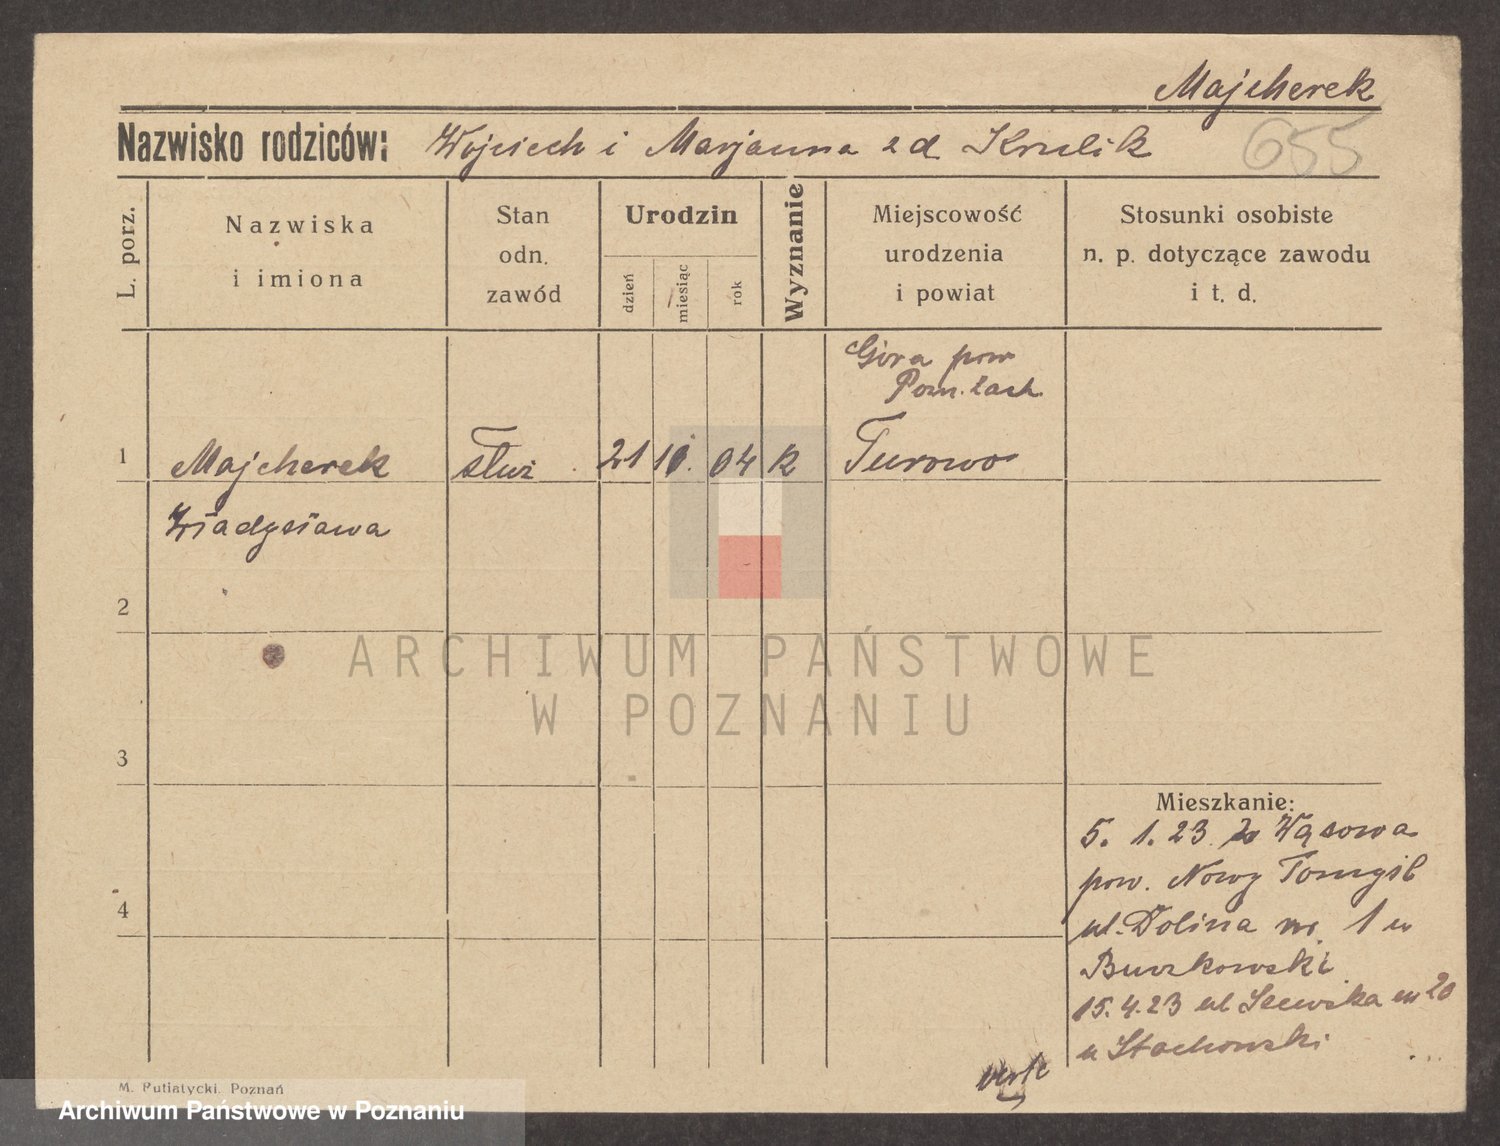 Majcherek
Nazwisko rodziców: Wojciech i Marjanna z d. Krulik 655
L. porz.
Nazwiska
i imiona
Stan
odn.
zawód
Urodzin
dzień
miesiąc
rok
Wyznanie
Miejscowość
urodzenia
i powiat
Stosunki osobiste
n. p. dotyczące zawodu
i t. d.
Góra pow
1 Majcherek służ 21 10. 04 k Turowo
Władysława
2
ARCHIWUM PAŃSTWOWE
W POZNANIU
3
Mieszkanie:
5. 1. 23 z Wąsowa
pow. Nowy Tomyśl
4
ul. Dolina nr. 1 u
Buszkowski
15.4.23 ul Szewska 20
u Stachowski
M. Putiatycki, Poznań
Archiwum Państwowe w Poznaniu